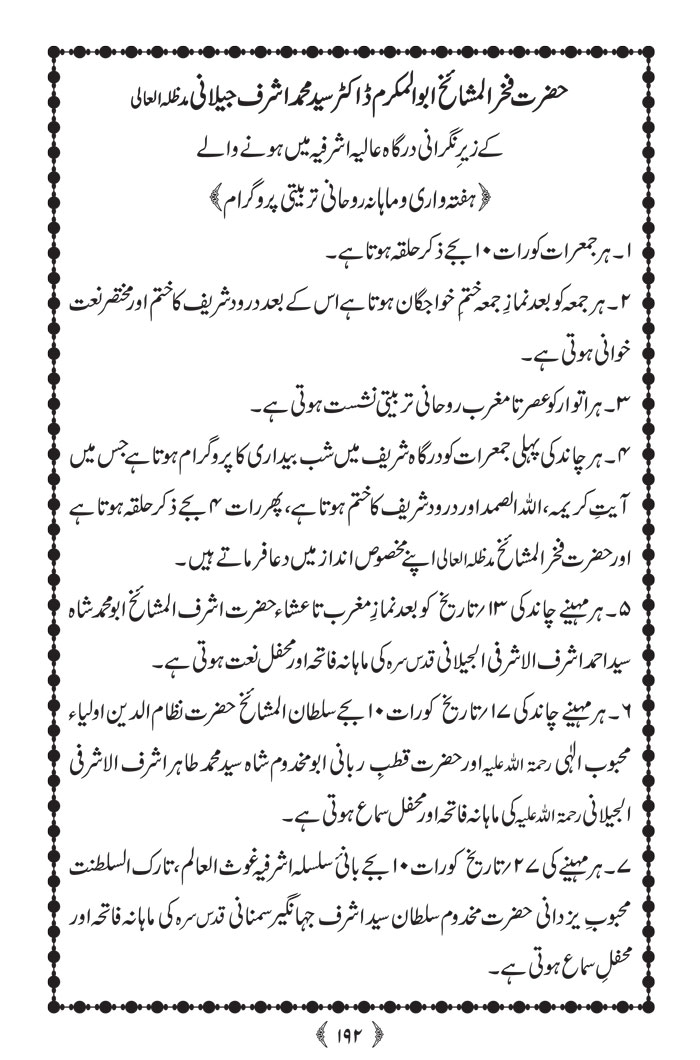 حضرت فخر المشائخ ابوالمکرم ڈاکٹر سید محمد اشرف جیلانی مدظلہ العالی
کے زیرِ نگرانی درگاہ عالیہ اشرفیہ میں ہونے والے
﴿ہفتہ واری و ماہانہ روحانی تربیتی پروگرام﴾
۱۔ ہر جمعرات کو رات ۱۰ بجے ذکر حلقہ ہوتا ہے۔
۲۔ ہر جمعہ کو بعد نمازِ جمعہ ختمِ خواجگان ہوتا ہے اس کے بعد درود شریف کا ختم اور مختصر نعت
خوانی ہوتی ہے۔
۳۔ ہر اتوار کو عصر تا مغرب روحانی تربیتی نشست ہوتی ہے۔
۴۔ ہر چاند کی پہلی جمعرات کو درگاہ شریف میں شب بیداری کا پروگرام ہوتا ہے جس میں
آیتِ کریمہ، اللہ الصمد اور درود شریف کا ختم ہوتا ہے، پھر رات ۴ بجے ذکر حلقہ ہوتا ہے
اور حضرت فخر المشائخ مدظلہ العالی اپنے مخصوص انداز میں دعا فرماتے ہیں۔
۵۔ ہر مہینے چاند کی ۱۳/تاریخ کو بعد نمازِ مغرب تا عشاء حضرت اشرف المشائخ ابو محمد شاہ
سید احمد اشرف الاشرفی الجیلانی قدس سرہ کی ماہانہ فاتحہ اور محفل نعت ہوتی ہے۔
۶۔ ہر مہینے چاند کی ۱۷/تاریخ کو رات ۱۰ بجے سلطان المشائخ حضرت نظام الدین اولیاء
محبوب الٰہی رحمۃ اللہ علیہ اور حضرت قطبِ ربانی ابو مخدوم شاہ سید محمد طاہر اشرف الاشرفی
الجیلانی رحمۃ اللہ علیہ کی ماہانہ فاتحہ اور محفل سماع ہوتی ہے۔
۷۔ ہر مہینے کی ۲۷/تاریخ کو رات ۱۰ بجے بانیٔ سلسلہ اشرفیہ غوث العالم، تارک السلطنت
محبوبِ یزدانی حضرت مخدوم سلطان سید اشرف جہانگیر سمنانی قدس سرہ کی ماہانہ فاتحہ اور
محفلِ سماع ہوتی ہے۔
﴿۱۹۲﴾